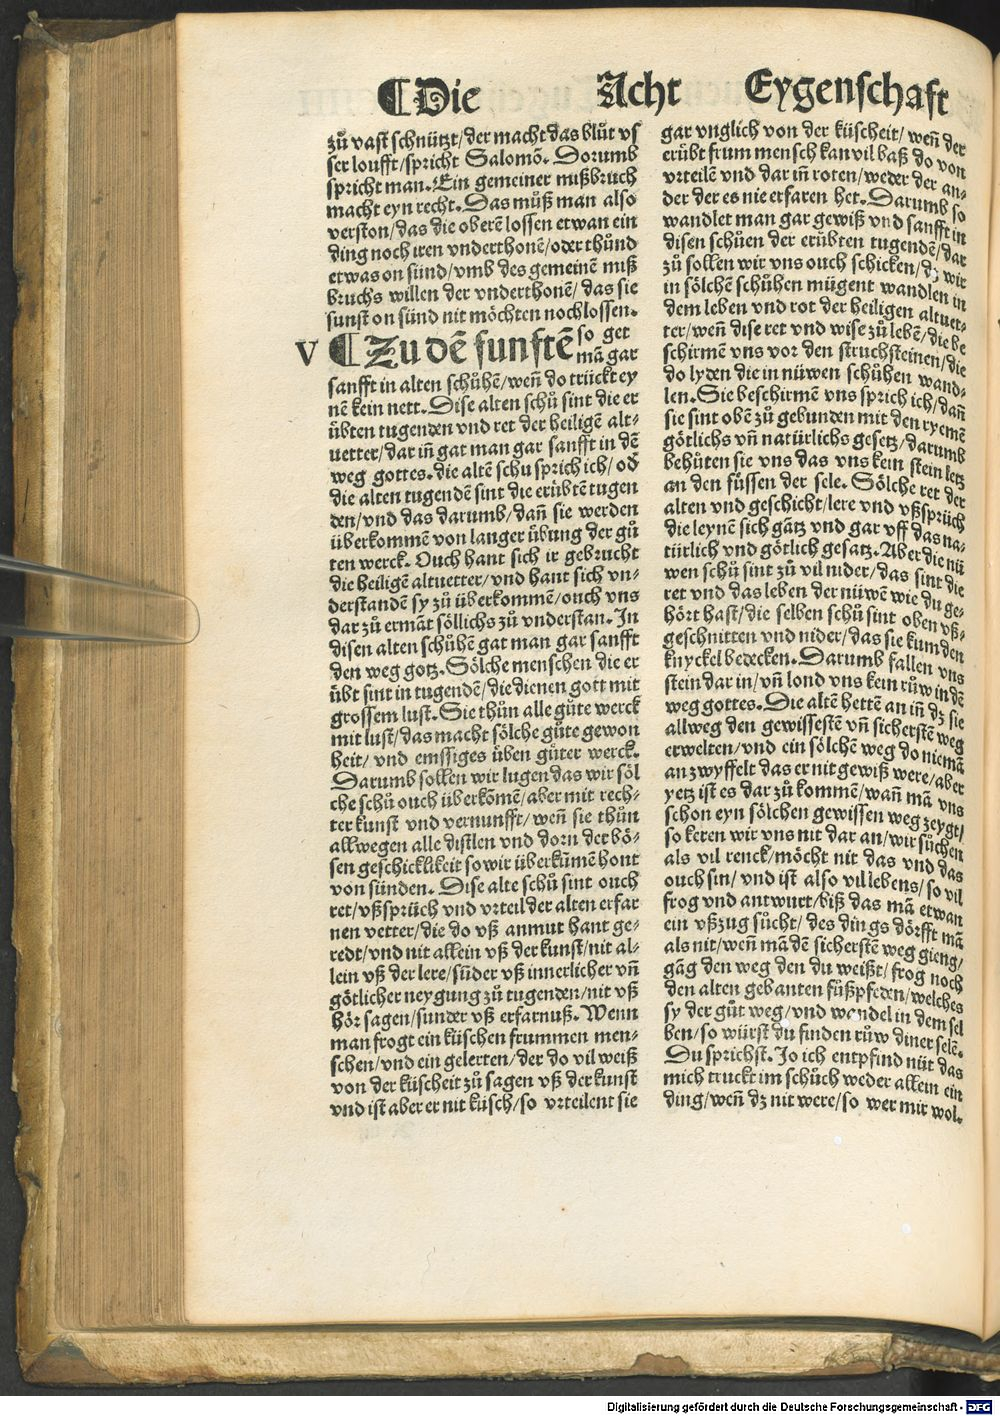 ¶Die Acht Eygenschaft
zů vast schnützt/der macht das blůt vs
ser loufft/spricht Salomō. Dorumb
spricht man. Ein gemeiner mißbruch
macht eyn recht. Das můß man also
verston/das die oberē lossen etwan ein
ding noch iren vnderthonē/oder thůnd
etwas on sünd/vmb des gemeinē miß
bruchs willen der vnderthonē/das sie
sunst on sünd nit möchten nochlossen.
V ¶Zu dē funftē so get
mā gar
sanfft in alten schůhē/weñ do trückt ey
nē kein nett. Dise alten schů sint die er
übten tugenden vnd ret der heiligē alt⸗
uetter/dar iñ gat man gar sanfft in dē
weg gottes. die altē schu sprich ich/od̄
die alten tugendē sint die erübtē tugen
den/vnd das darumb/dañ sie werden
überkommē von langer übung der gů
ten werck. Ouch hant sich ir gebrucht
die heiligē altuetter/vnd hant sich vn⸗
derstandē sy zů überkommē/ouch vns
dar zů ermāt söllichs zů vnderstan. In
disen alten schůhē gat man gar sanfft
den weg gotz. Sölche menschen die er
übt sint in tugendē/die dienen gott mit
grossem lust. Sie thůn alle gůte werck
mit lust/das macht sölche gůte gewon
heit/vnd emssiges üben gůter werck.
Darumb sollen wir lugen das wir söl
che schů ouch überkōmē/aber mit rech⸗
ter kunst vnd vernunfft/weñ sie thůn
allwegen alle distlen vnd dorn der bö⸗
sen geschicklikeit so wir überkūmē hont
von sünden. Dise alte schů sint ouch
ret/vßsprüch vnd vrteil der alten erfar
nen vetter/die do vß anmut hant ge⸗
redt/vnd nit allein vß der kunst/nit al⸗
lein vß der lere/sūder vß innerlicher vñ
götlicher neygung zů tugenden/nit vß
hör sagen/sunder vß erfarnuß. Wenn
man frogt ein küschen frummen men⸗
schen/vnd ein gelerten/der do vil weiß
von der küscheit zů sagen vß der kunst
vnd ist aber er nit küsch/so vrteilent sie
gar vnglich von der küscheit/weñ der
erübt frum mensch kan vil baß do von
vrteilē vnd dar iñ roten/weder der an⸗
der der es nie erfaren het. Darumb so
wandlet man gar gewiß vnd sanfft in
disen schůen der erübten tugendē/dar
zů sollen wir vns ouch schicken/dz wir
in sölchē schůhen mügent wandlen in
dem leben vnd rot der heiligen altuet⸗
ter/weñ dise ret vnd wise zů lebē/die be
schirmē vns vor den struchsteinen/die
do lyden die in nüwen schůhen wand⸗
len. Sie beschirmē vns sprich ich/dañ
sie sint obē zů gebunden mit den ryemē
götlichs vñ natürlichs gesetz/darumb
behůten sie vns das vns kein stein letz
an den füssen der sele. Sölche ret der
alten vnd geschicht/lere vnd vßsprüch
die leynē sich gātz vnd gar vff das na⸗
türlich vnd götlich gesatz. Aber die nü
wen schů sint zů vil nider/das sint die
ret vnd das leben der nüwē wie du ge⸗
hört hast/die selben schů sint oben vß⸗
geschnitten vnd nider/das sie kum den
knyckel bedecken. Darumb fallen vns
stein dar in/vñ lond vns kein růw in dē
weg gottes. Die altē hettē an iñ dz sie
allweg den gewissestē vñ sicherstē weg
erwelten/vnd ein sölchē weg do niemā
an zwyffelt das er nit gewiß were/aber
yetz ist es dar zů kommē/wañ mā vns
schon eyn sölchen gewissen weg zeygt/
so keren wir vns nit dar an/wir sůchen
als vil renck/möcht nit das vnd das
ouch sin/vnd ist also vil lebens/so vil
frog vnd antwurt/biß das mā etwan
ein vßzug sůcht/des dings dörfft mā
als nit/weñ mā dē sicherstē weg gieng/
gāg den weg den du weißt/frog noch
den alten gebanten fůßpfeden/welches
sy der gůt weg/vnd wandel in dem sel
ben/so würst du finden růw diner selē.
Du sprichst. Jo ich entpfind nüt das
mich truckt im schůch weder allein ein
ding/weñ dz nit were/so wer mir wol.
Digitalisierung gefördert durch die Deutsche Forschungsgemeinschaft - DFG